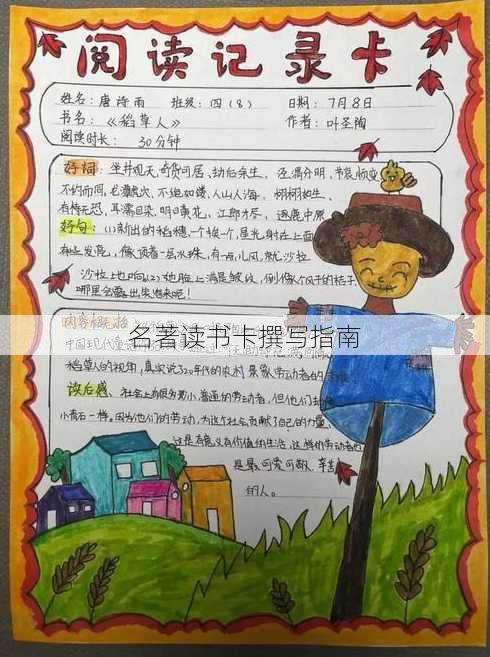 阅读记录卡
姓名：唐诗雨 班级：四（8） 日期：7月8日
书名：《稻草人》 作者：叶圣陶
阅读时长：30分钟
好词：坐井观天、奇货可居、劫后余生、泾渭分明、节哀顺变
不约而同、毛骨悚然、不绝如缕、人山人海、栩栩如生、
有恃无恐、耳濡目染、明日黄花、江郎才尽、逐鹿中原
好句：（1）新出的稻穗一个挨一个，星光射在上面
有些发亮，像顶着一层水珠，有一点儿风，就沙拉
沙拉地响（2）她脸上满是皱纹，倒像个风干的桔子，
哪里会露出笑容来呢！
内容概括
名著读书卡撰写指南
中国现代童话
稻草人的视角，真实说了20年代的农村
读后感、社会上有很多渺小、普通的劳动者，但他们却像
小青石一样。因为他们的劳动，为这个社会贡献了自己的力量、
这是有意义有价值的生活、这样的劳动者也
是最可爱可敬、辛苦
的人。